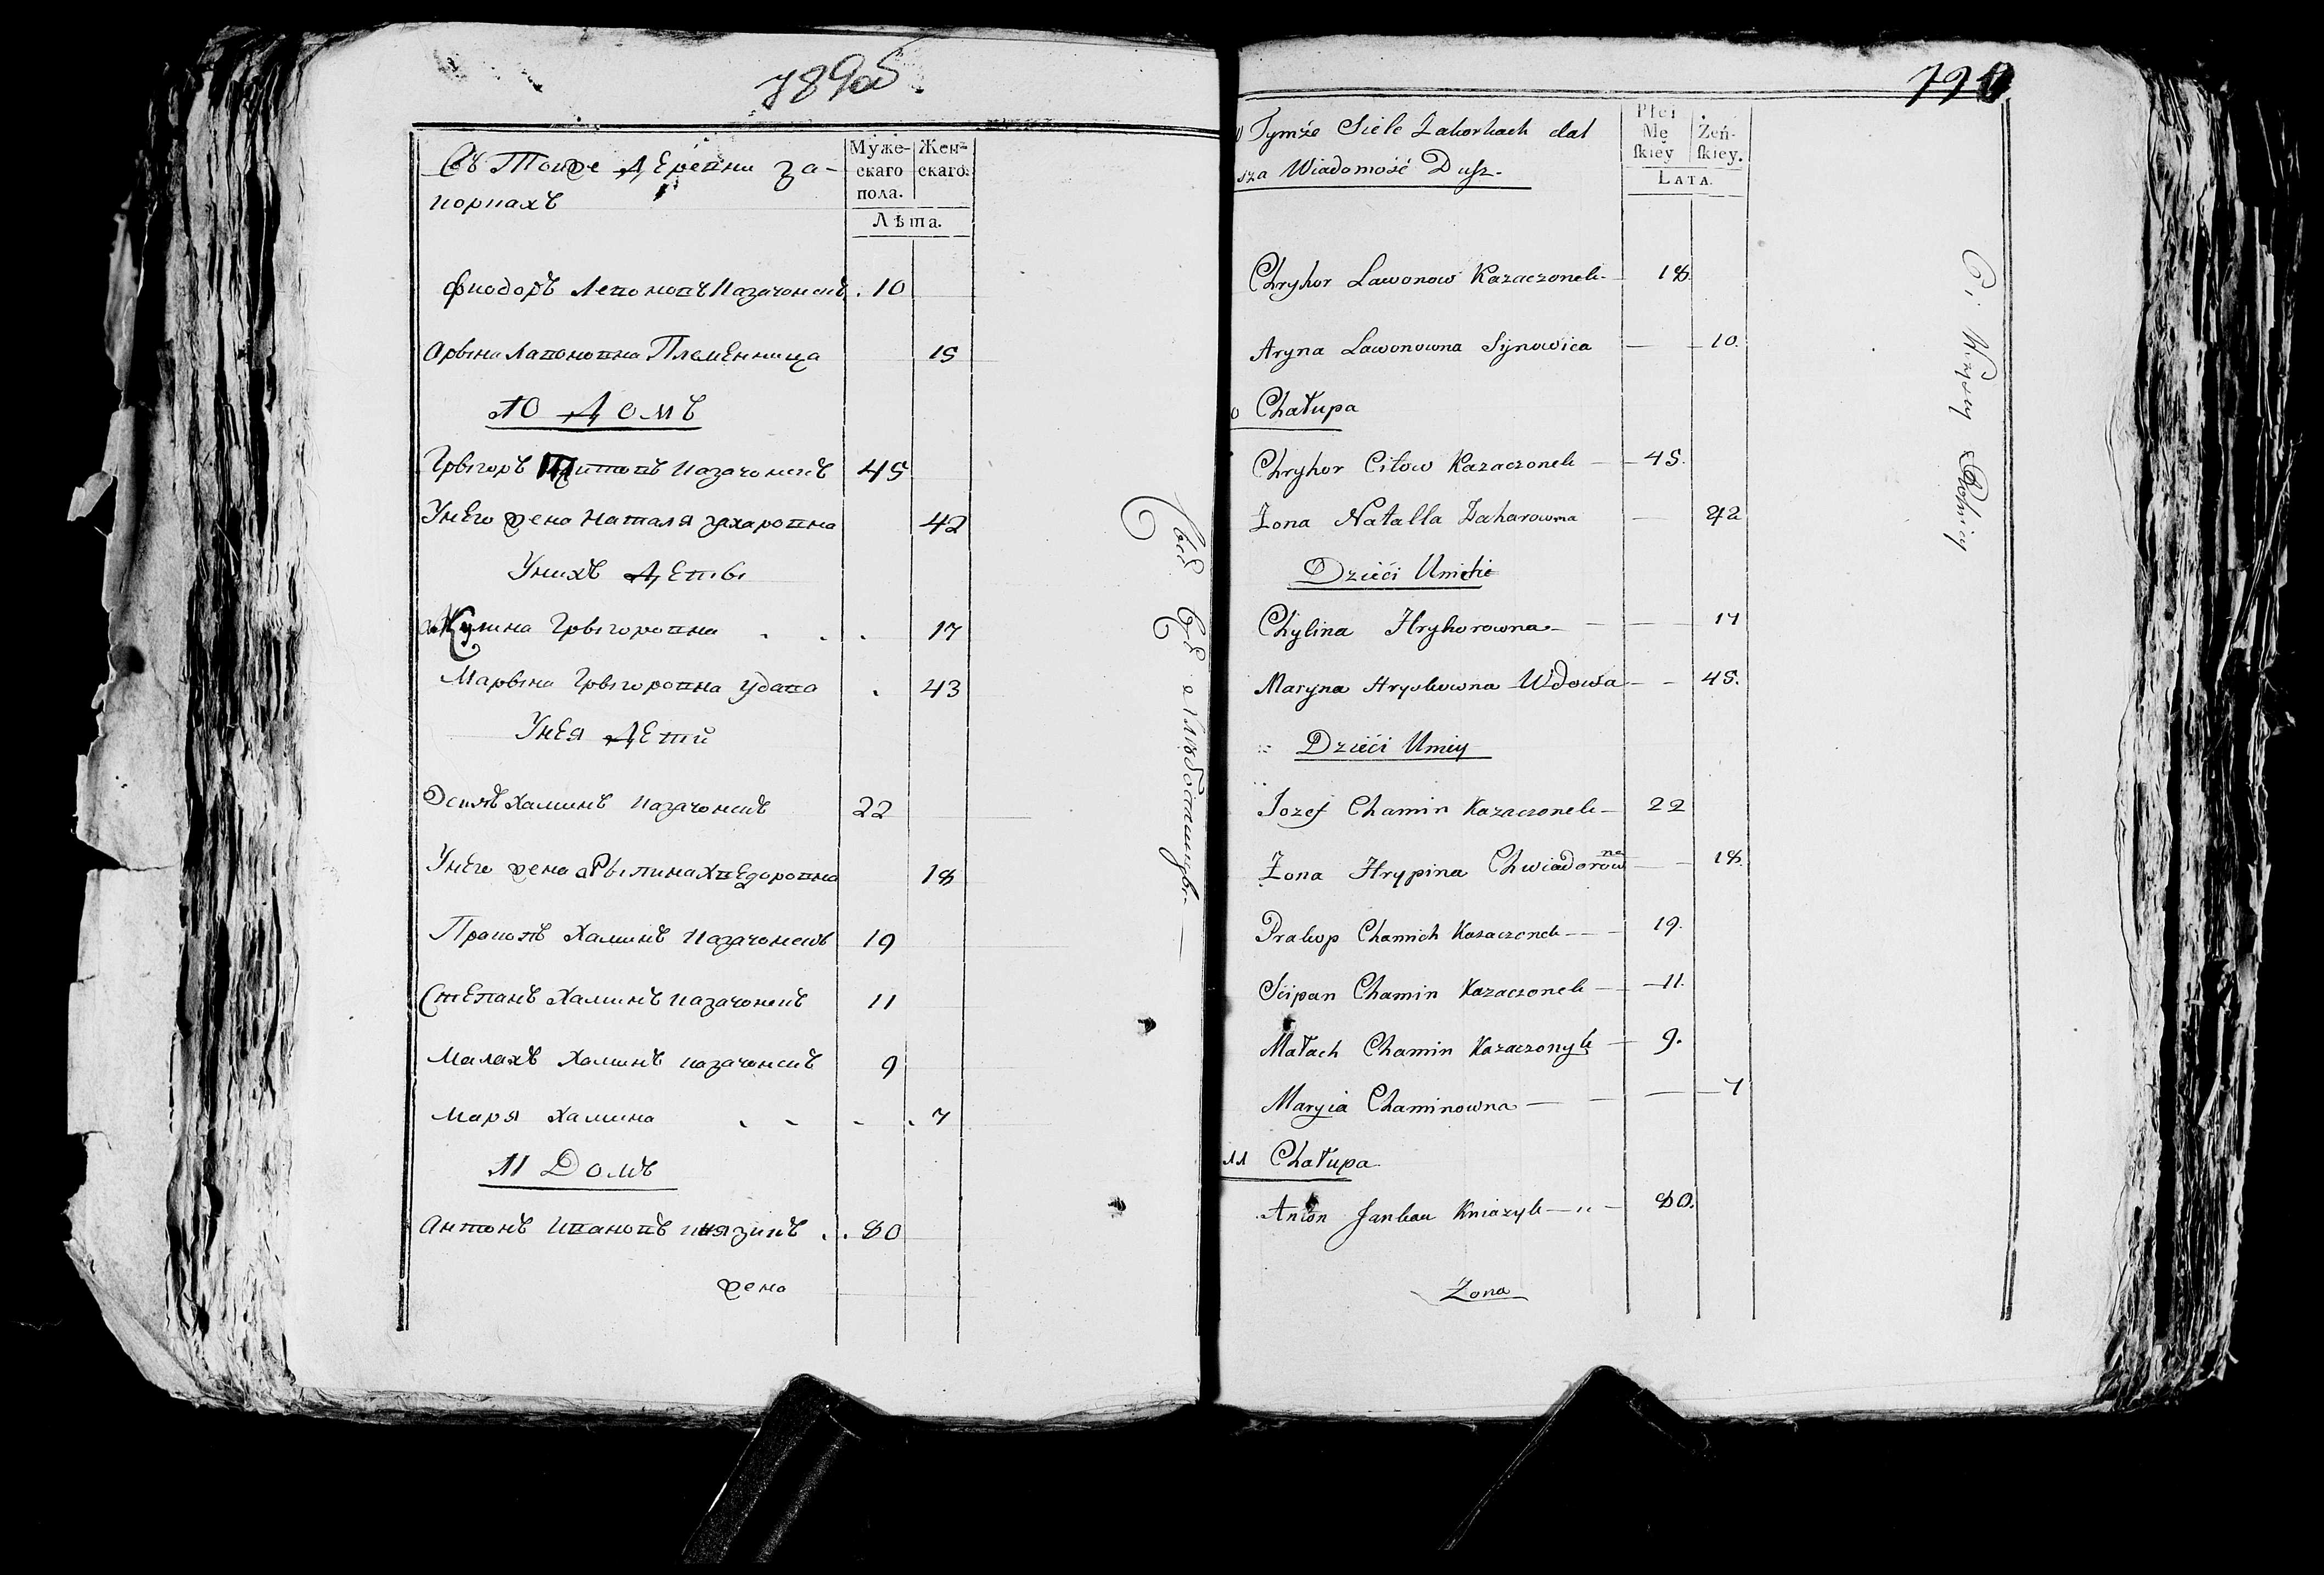 789об
Въ Тойже Деревни За-
коркахъ
Муже-
скаго
пола.
Жен-
скаго.
Лѣта.
Фиодоръ Левоновъ Казачонекъ . 10
Арына Лавоновна Племенница 15
10 Домъ
Грыгоръ Титовъ Казачонекъ 45
Унего жена Наталя Захаровна 42
Унихъ Деты
Акулина Грыгоровна . . . 17
Марына Грыгоровна удава . 43
Унея Дети
Эсипъ Хаминъ Казачонекъ 22
Унего жена аГрыпина Хведоровна 18
Пракопъ Хаминъ Казачонекъ 19
Степанъ Хаминъ Казачонекъ 11
Малахъ Хаминъ Казачонекъ 9
Маря Хамина . . . . 7
11 Домъ
Антонъ Ивановъ Князикъ . . 80
жена
790
Tymże Siele Zakorkach dal
sza Wiadomość Dusz.
Płci
Mę
skiey
Żeń-
skiey.
LATA.
Chryhor Lawonow Kazaczonek 18
Aryna Lawonowna Synowica 10.
0 Chałupa
Chryhor Citow Kazaczonek 45.
Żona Natalla Zaharowna 42
Dzieci Unichie
Chylina Hryhorowna 17
Maryna Hryskowna Wdowa 45.
Dzieci Uniey
Jozef Chamin Kazaczonek 22
Żona Hrypina Chwiadorowna 18.
Prakop Chamich Kazaczonek 19.
Scipan Chamin Kazaczonek 11.
Małach Chamin Kazaczonyk 9.
Maryia Chaminowna 7
11 Chałupa
Anton Jankau Kniazyk 80.
Żona